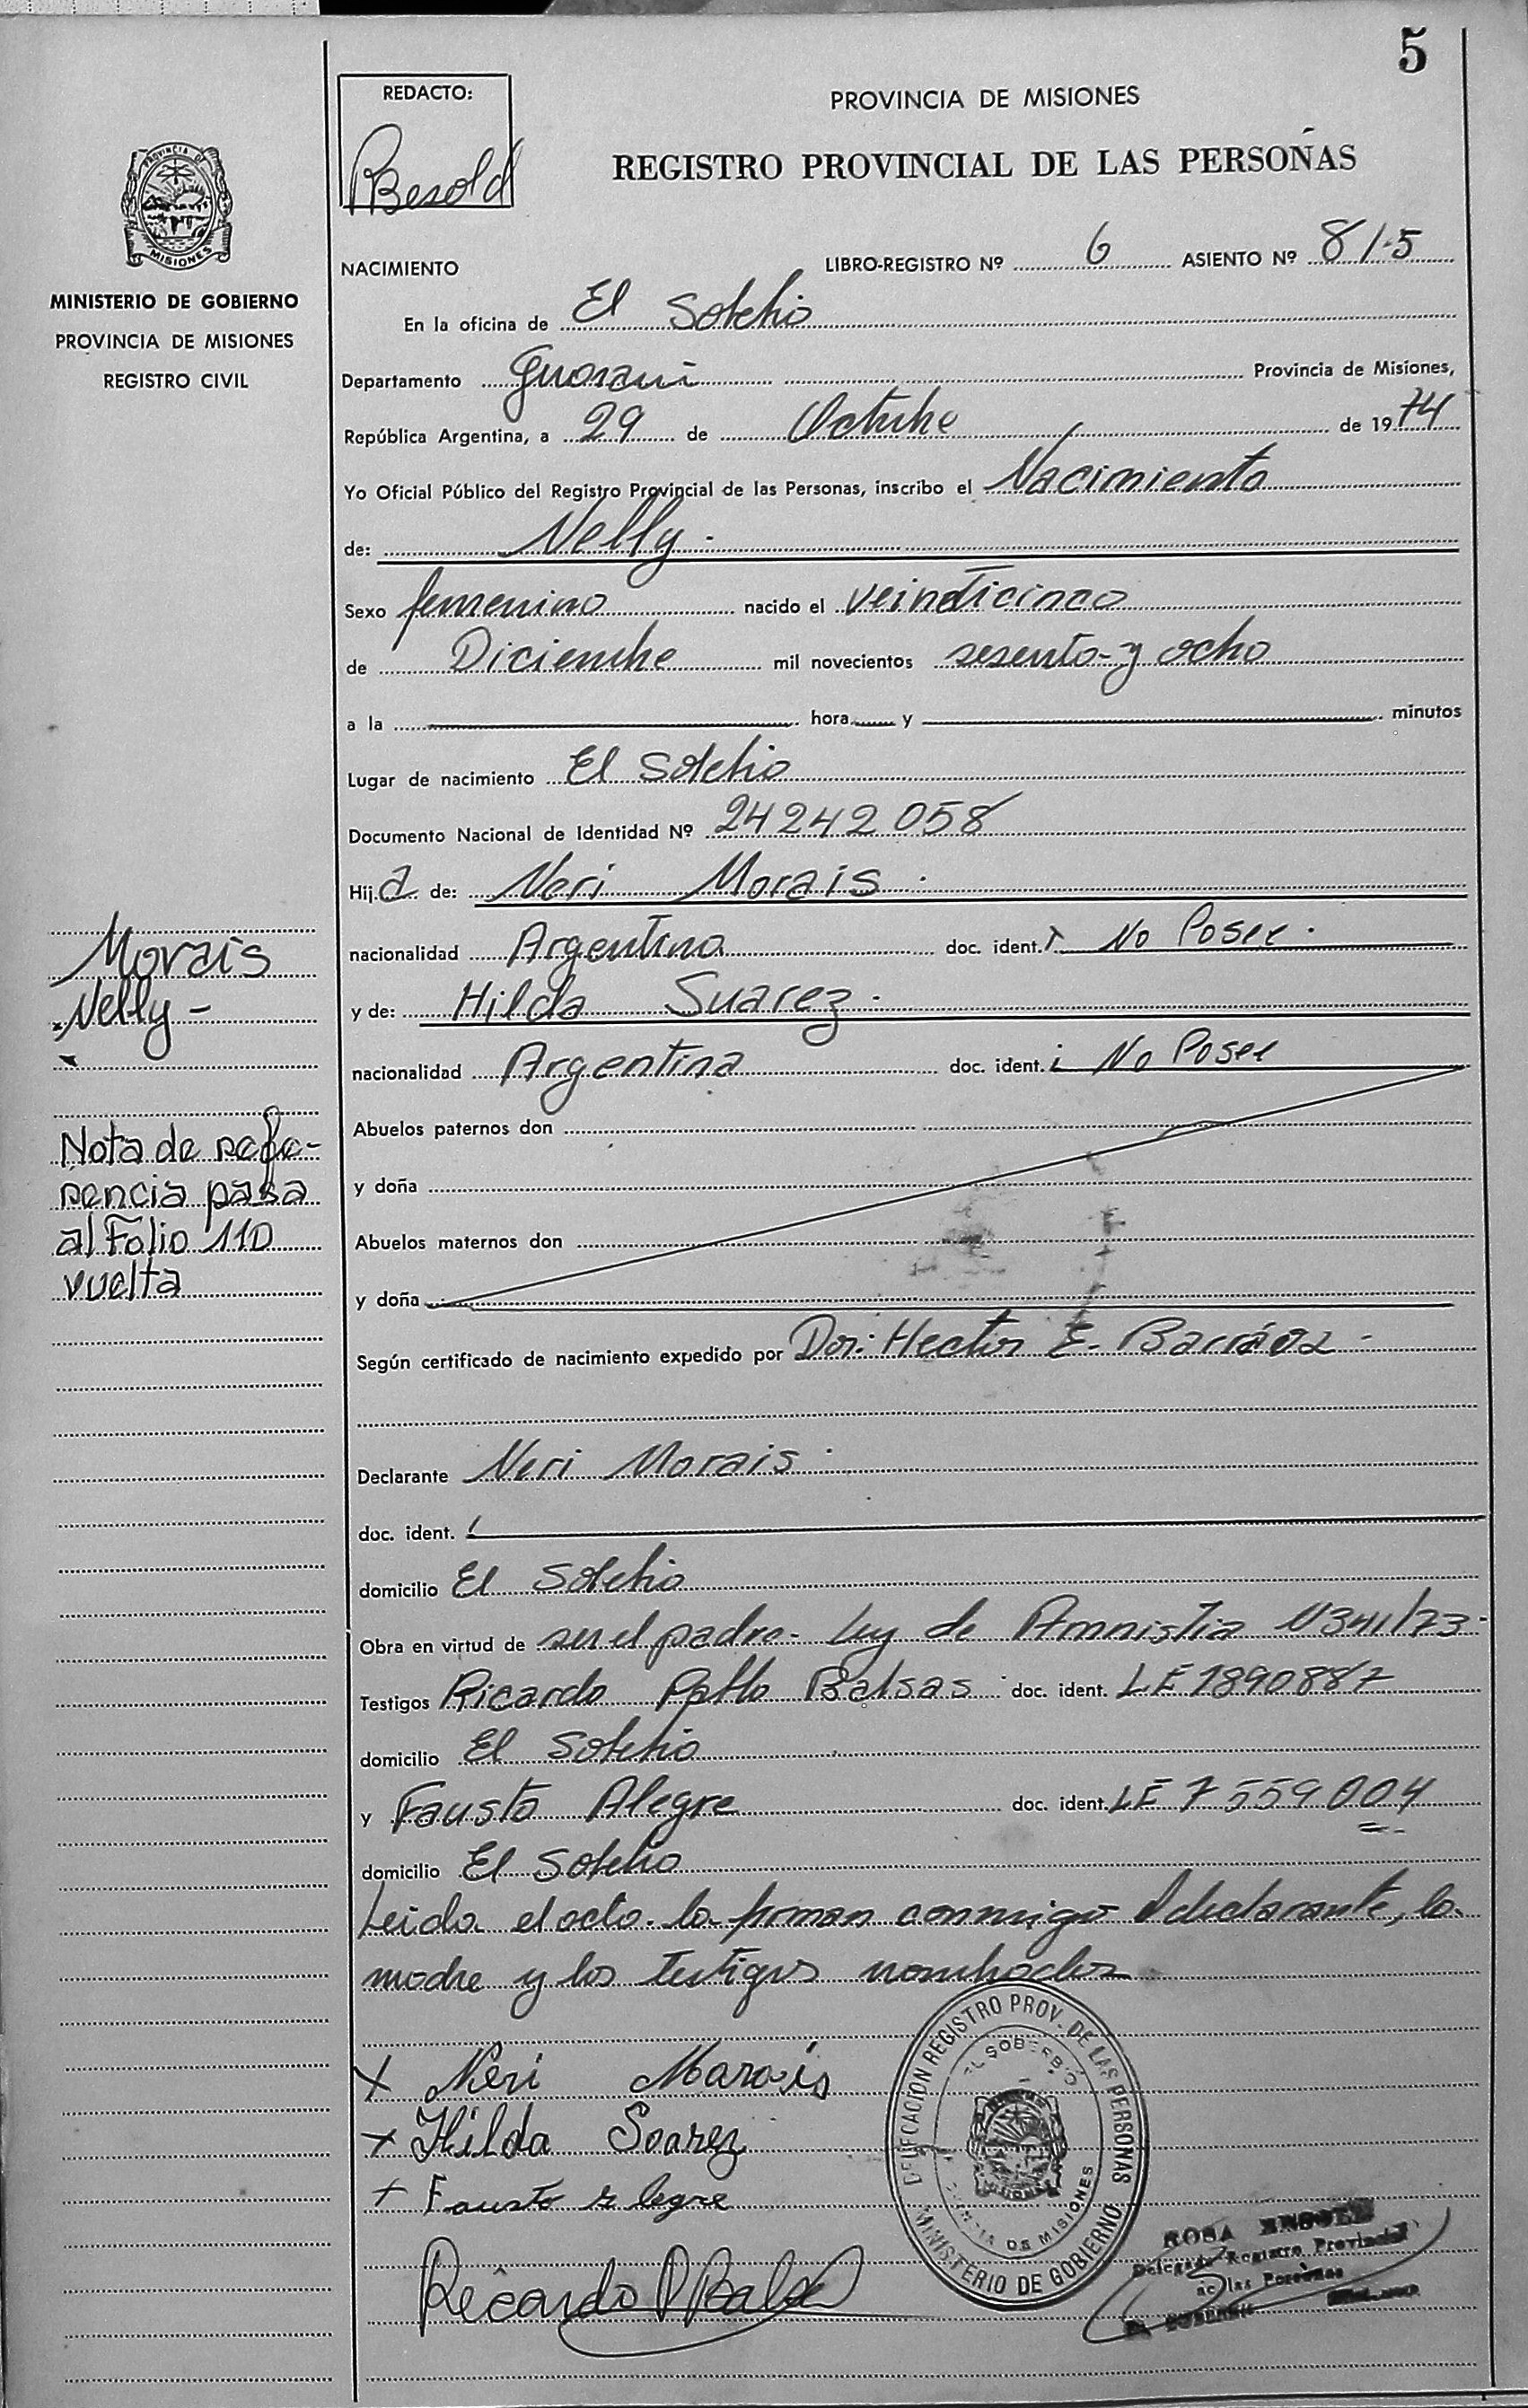 5
REDACTO:
Besold
PROVINCIA DE MISIONES
REGISTRO PROVINCIAL DE LAS PERSONAS
PROVINCIA DE
MISIONES
MINISTERIO DE GOBIERNO
PROVINCIA DE MISIONES
REGISTRO CIVIL
NACIMIENTO LIBRO-REGISTRO Nº 6 ASIENTO Nº 815
En la oficina de El Soberbio
Departamento Guarani Provincia de Misiones,
República Argentina, a 29 de Octubre de 1974
Yo Oficial Público del Registro Provincial de las Personas, inscribo el Nacimiento
de: Nelly.
Sexo femenino nacido el veinticinco
de Diciembre mil novecientos sesenta y ocho
a la hora y minutos
Lugar de nacimiento El Soberbio
Documento Nacional de Identidad Nº 24242058
Hija de: Neri Morais.
nacionalidad Argentina doc. ident. No Posee.
y de: Hilda Suarez.
nacionalidad Argentina doc. ident. No Posee
Abuelos paternos don
y doña
Abuelos maternos don
y doña
Según certificado de nacimiento expedido por Dor: Hector E.
Declarante Neri Morais.
doc. ident.
domicilio El Soberbio
Obra en virtud de ser el padre- Ley de Amnistia
Testigos Ricardo Pablo Balsas doc. ident. LE 7890887
domicilio El Soberbio
y Fausto Alegre doc. ident. LE 7559004
domicilio El Soberbio
Leida el acta. la firman conmigo el declarante, la
madre y los testigos nombrados
Morais
Nelly -
Nota de refe-
rencia pasa
al Folio 110
vuelta
+ Neri Marais
+ Hilda Soarez
+ Fausto Alegre
Ricardo P Balsa
DELEGACION REGISTRO PROV. DE LAS PERSONAS
EL SOBERBIO
PROVINCIA DE MISIONES
MINISTERIO DE GOBIERNO
ROSA
Delegada Registro Provincial
de las Personas
EL SOBERBIO